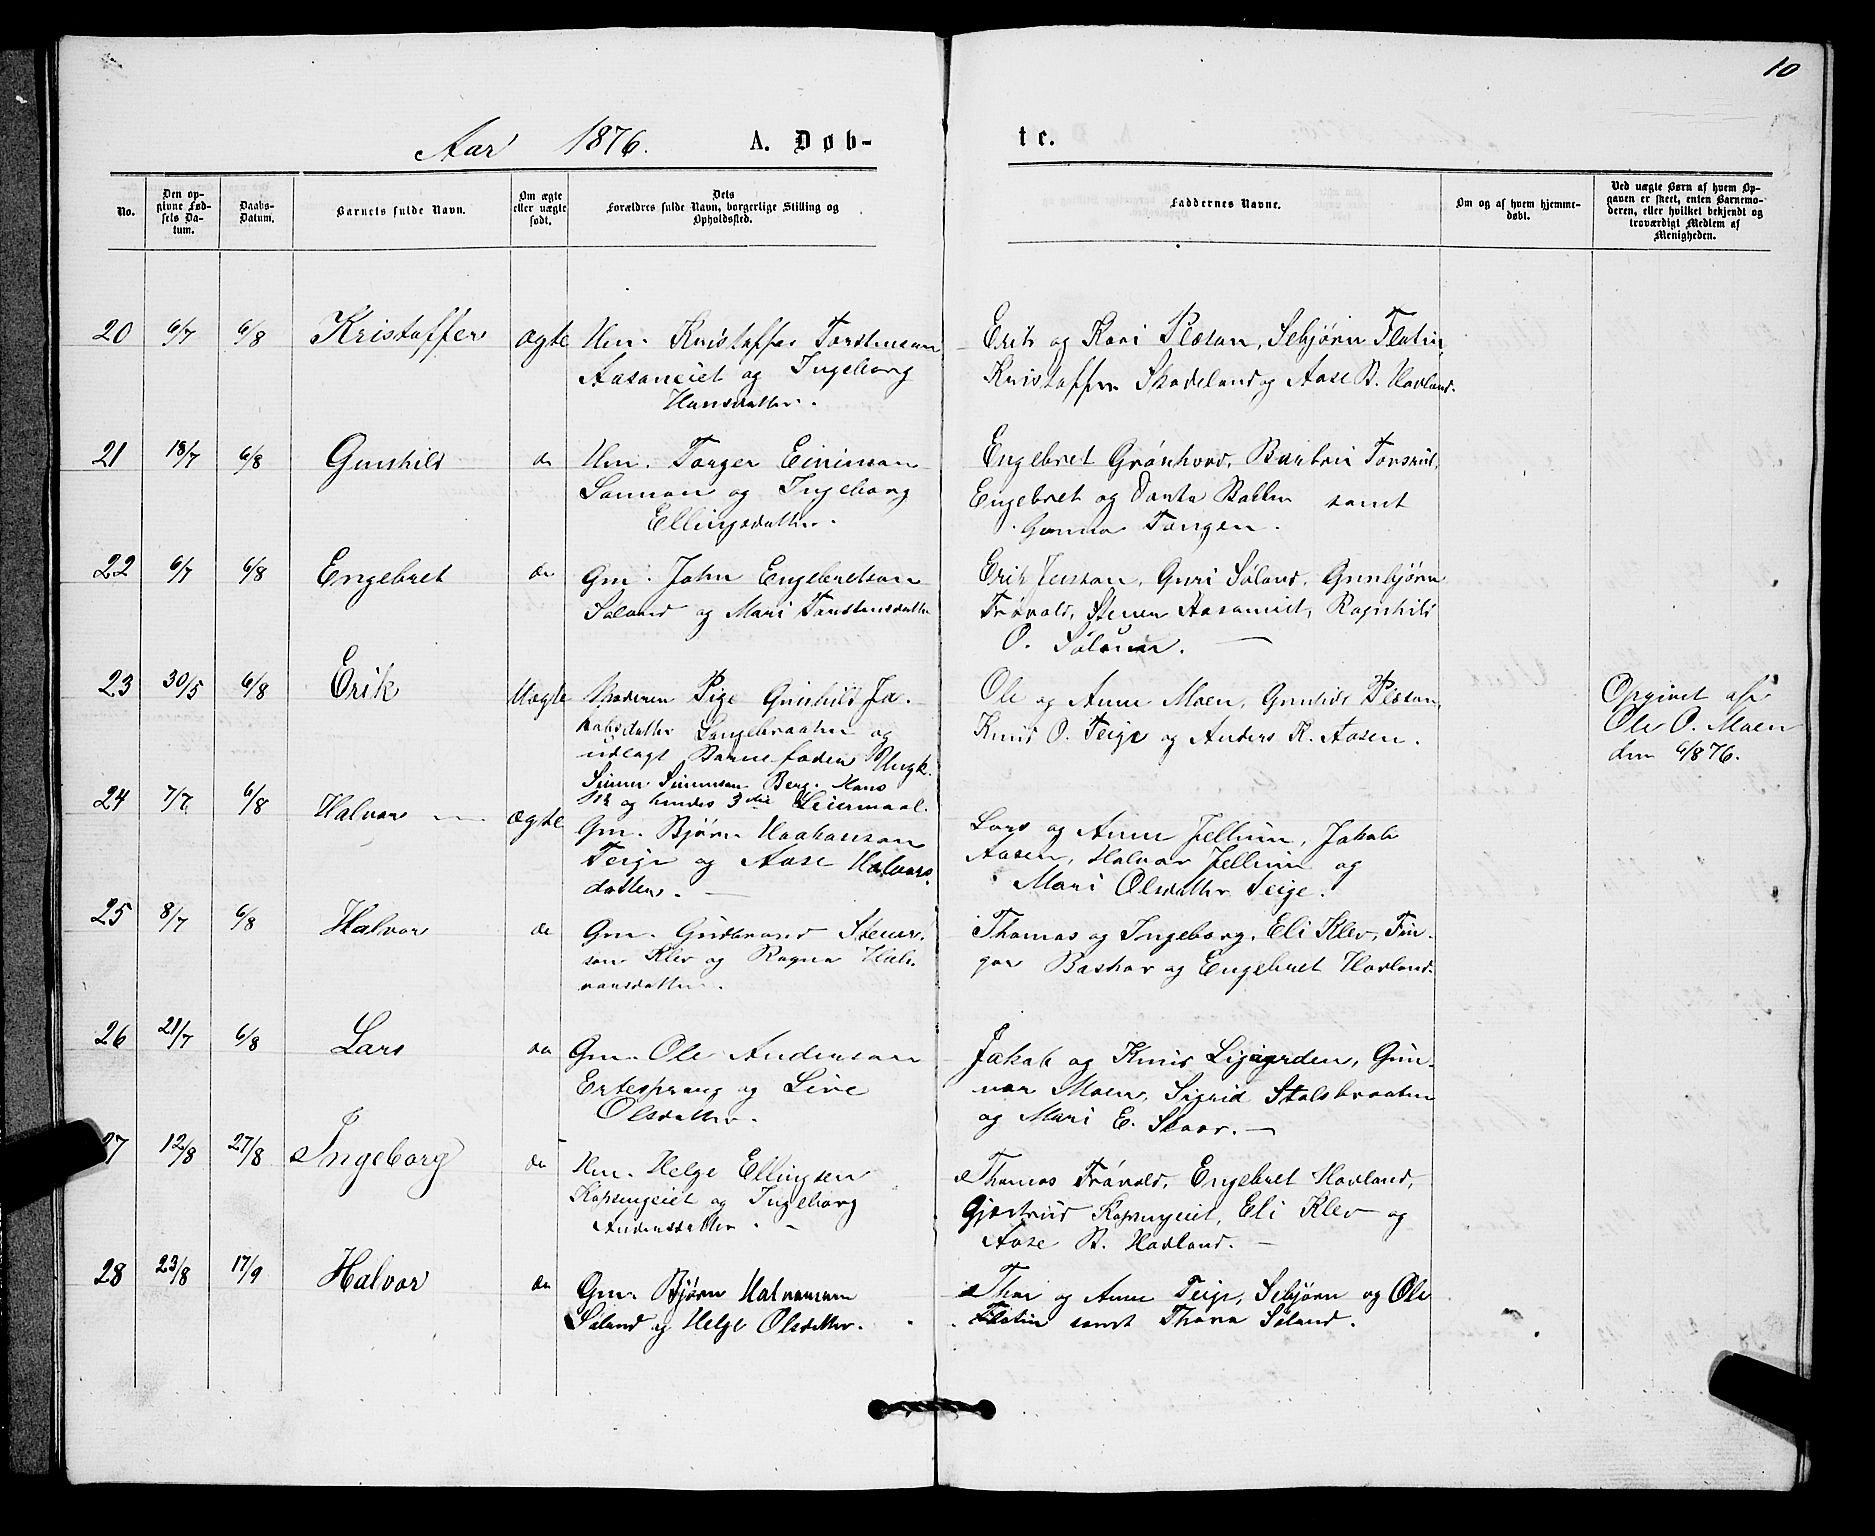 10
Aar 1876. A. Døb-
te.
No.
Den op-
givne Fød-
sels Da-
tum.
Daabs-
Datum.
Barnets fulde Navn.
Om ægte
eller uægte
født.
Dets
Forældres fulde Navn, borgerlige Stilling og
Opholdssted.
Faddernes Navne.
Om og af hvem hjemme-
døbt.
Ved uægte Børn af hvem Op-
gaven er skeet, enten Barnemo-
deren, eller hvilket bekjendt og
troværdigt Medlem af
Menigheden.
20 6/7 6/8 Kristoffer Ægte Hm. Kristoffer Torstensen
Aasaneiet og Ingeborg
Hansdatter.
Erik og Kari Plæsan, Sebjørn Flatin,
Kristoffer Skadeland og Aase B. Havland.
21 18/7 6/8 Gunhild do Hm. Torger Einarson
og Ingeborg
Ellingsdatter.
Engebret Grønhovd, Barbro
Engebret og Dorte Bakken samt
Gunnar Tangen.
22 6/7 6/8 Engebret do Gm. John Engebretson
Søland og Mari Torstensdatter
Erik Guri Søland, Gunbjørn
Frøvold, Stener Aasaneiet, Ragnhild
O. Søland.
23 30/5 6/8 Erik Uægte Moderen Pige Gunhild Ja-
kobsdatter Langebraaten og
udlagt Barnefader Ungk.
Simen Simenson Berg. Hans
1ste og hendes 3die Leiermaal.
Ole og Anne Moen, Gunhild Plæsan,
Knud O. Teige og Anders K. Aasen.
Opgivet af
Ole O. Moen
den 6/8 76.
24 7/7 6/8 Halvor Ægte Gm. Bjørn Haakonson
Teige og Aase Halvors-
datter.
Lars og Anne Jellum, Jakob
Aasen, Halvor Jellum og
Mari Olsdatter Teige.
25 8/7 6/8 Halvor do Gm. Gudbrand Stener-
son Klev og Ragna Hal-
vorsdatter.
Thomas og Ingeborg, Eli Klev, Fin-
gar Baskar og Engebret Havland.
26 21/7 6/8 Lars do Gm. Ole Anderson
Ertesprang og Live
Olsdatter.
Jakob og Knud Ligaarden, Gun-
vor Moen, Sigrid Stolsbraaten
og Mari E. Skaar.
27 12/8 27/8 Ingeborg do Hm. Helge Ellingsen
Kopsengeiet og Ingeborg
Andersdatter.
Thomas Frøvold, Engebret Havland,
Gjertrud Kopsengeiet, Eli Klev og
Aase B. Havland.
28 23/8 17/9 Halvor do Gm. Bjørn Halvorson
Søland og Helge Olsdatter.
Thor og Anne Teige, Sebjørn og Ole
Flatin samt Thora Søland.